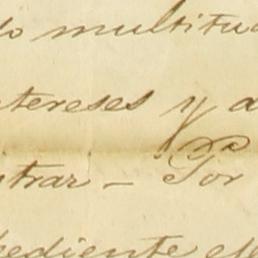 do multitu
ntereses y a
trar - Por
pediente es